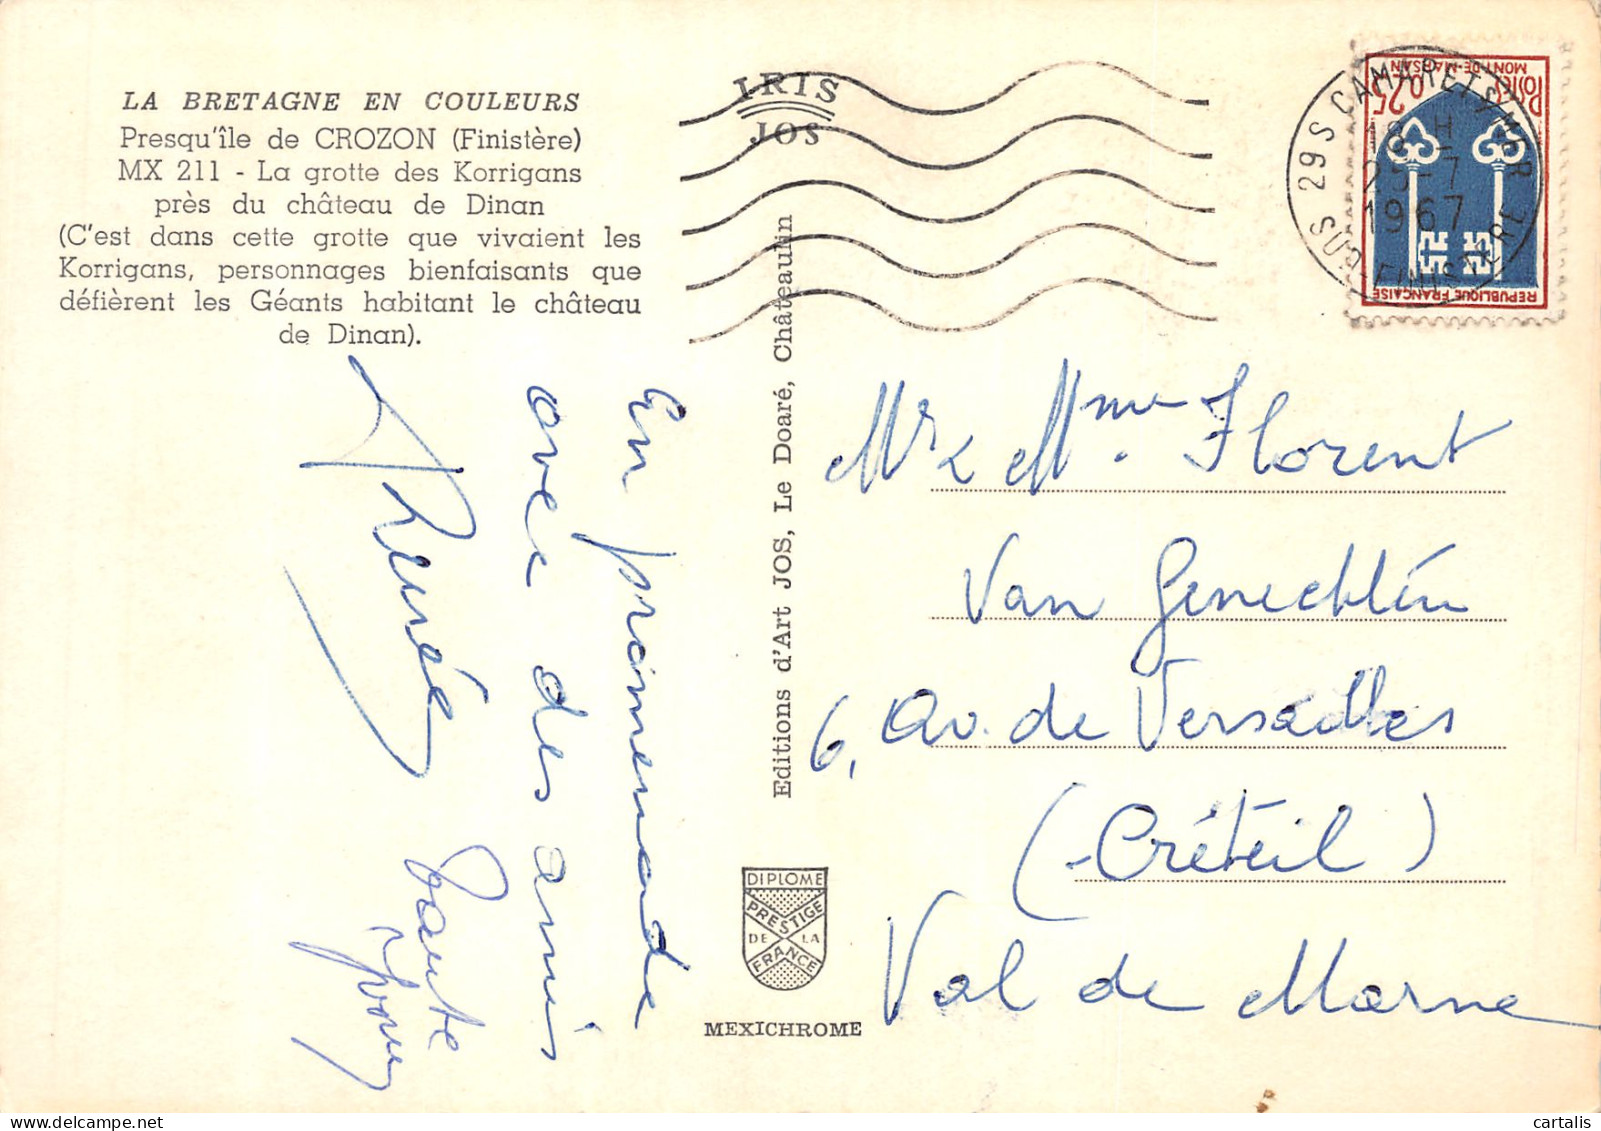 LA BRETAGNE EN COULEURS
Presqu'île de CROZON (Finistère)
MX 211 - La grotte des Korrigans
près du château de Dinan
(C'est dans cette grotte que vivaient les
Korrigans, personnages bienfaisants que
défièrent les Géants habitant le château
de Dinan).
En promenade
avec des amis
Renée
Tante
Yvonne
IRIS
JOS
Editions d'Art JOS, Le Doaré, Châteaulin
DIPLOME
PRESTIGE
DE LA
FRANCE
MEXICHROME
29S CAMARET S/MER
18 H
25-7
1967
SUD-FINISTERE
REPUBLIQUE FRANÇAISE
0,25
POSTES
MONT-DE-MARSAN
Mr & Mme Florent
Van Genechten
6, Av. de Versailles
(Créteil)
Val de Marne
cartalis